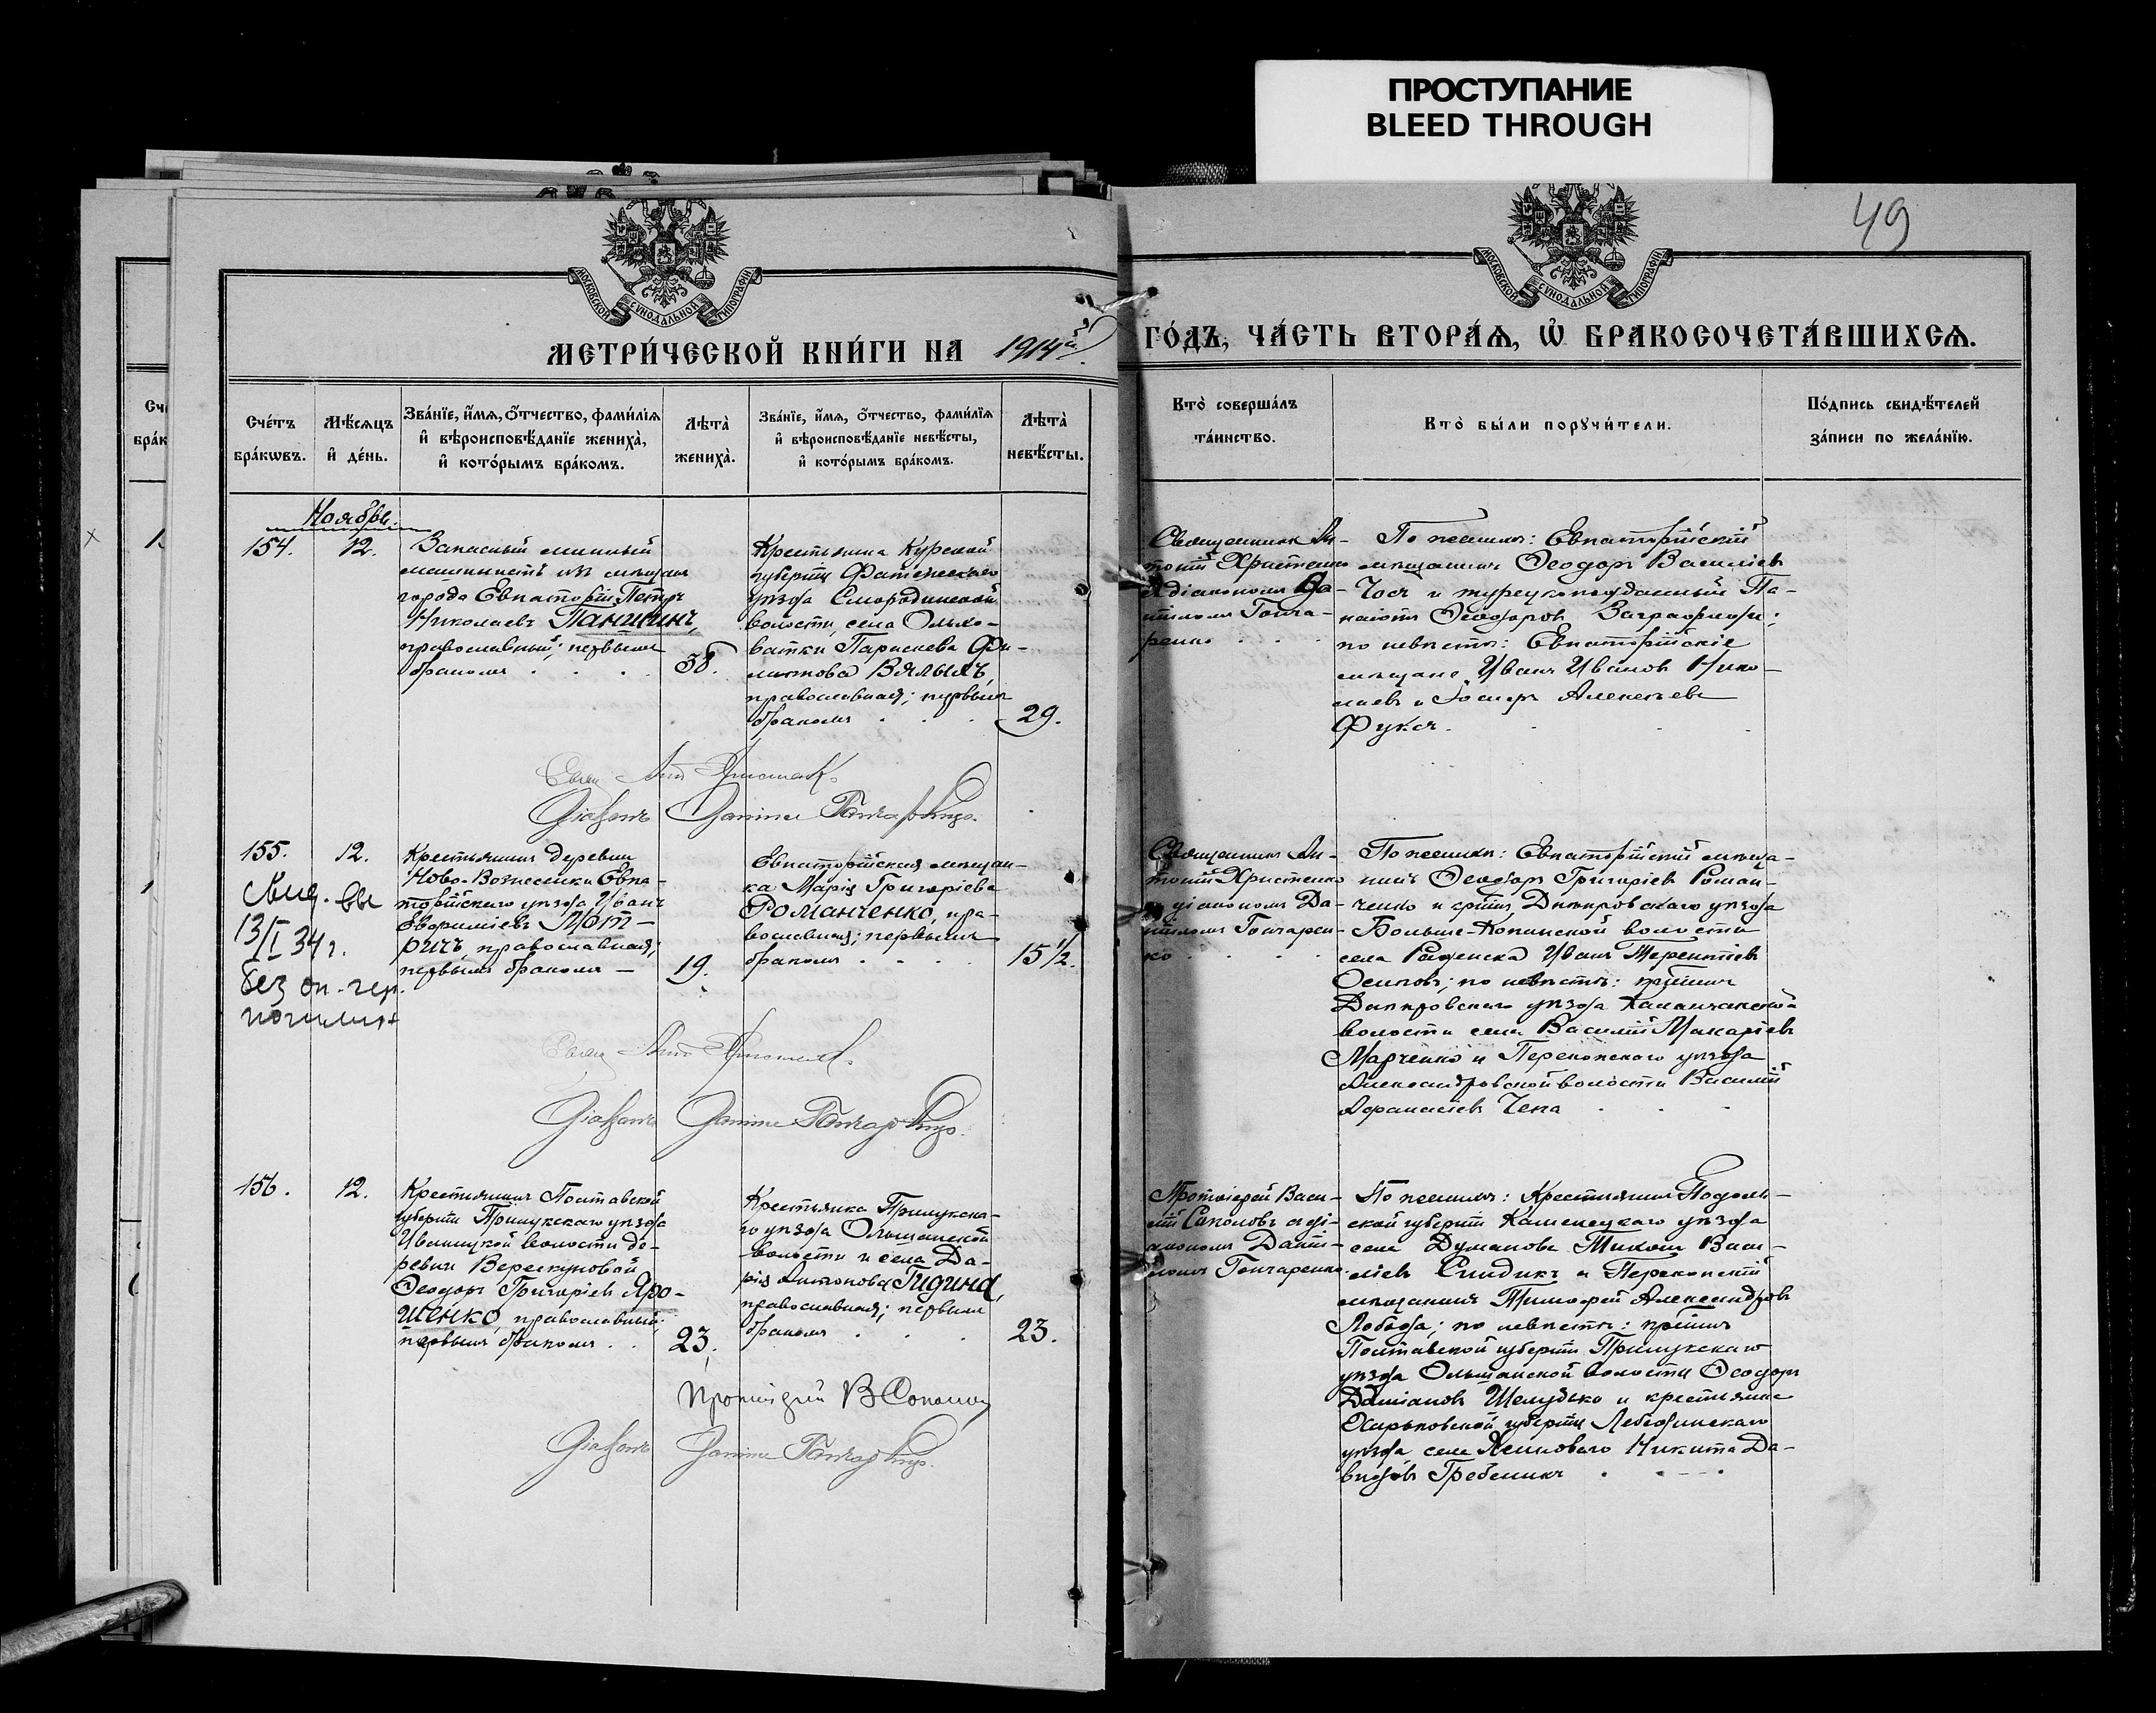 ПРОСТУПАНИЕ
BLEED THROUGH
49
МОСКОВСКОЙ СѴНОДАЛЬНОЙ ТИПОГРАФІИ
МОСКОВСКОЙ СѴНОДАЛЬНОЙ ТИПОГРАФІИ
МЕТРИ́ЧЕСКОЙ КНИ́ГИ НА 1914й
ГО́ДЪ, ЧА́СТЬ ВТОРА́Ѧ, Ѽ БРАКОСОЧЕТА́ВШИХСѦ.
Сче́тъ бра́кѡвъ.
Мѣ́сѧцъ и҆ де́нь.
Зва́нїе, и҆́мѧ, ѻ҆́тчество, фами́лїѧ и҆ вѣроисповѣ́данїе жениха̀, и҆ кото́рымъ бра́комъ.
Лѣта̀ жениха̀.
Зва́нїе, и҆́мѧ, ѻ҆́тчество, фами́лїѧ и҆ вѣроисповѣ́данїе невѣ́сты, и҆ кото́рымъ бра́комъ.
Лѣта̀ невѣ́сты.
Кто̀ соверша́лъ та́инство.
Кто̀ бы́ли порꙋчи́тели.
По́дпись свидѣ́телей за́писи по жела́нїю.
Ноябрь.
154.
12.
Запасный минный
машинистъ изъ мѣщан
города Евпаторіи Петръ
Николаевъ Паншинъ,
православный; первымъ
бракомъ
38.
Крестьянка Курской
губерніи Фатежскаго
уѣзда Смородинской
волости, села Ольхо-
ватки Параскева Фи-
липпова Вялыхъ,
православная; первымъ
бракомъ
29.
Священникъ Ан-
тоній Христенко
с діакономъ Да-
ніиломъ Гонча-
ренко
По женихѣ: Евпаторійскій
мѣщанинъ Ѳеодоръ Василіевъ
Чосъ и турецкоподданный Па-
наіотъ Ѳеодоровъ
по невѣстѣ: Евпаторійскіе
мѣщане Иванъ Ивановъ Нико-
лаевъ и Іосифъ Алексѣевъ
Фуксъ.
Діаконъ Даніилъ Гончаренко.
155.
12.
13/I 34 г.
без
Крестьянинъ деревни
Ново-Вознесенки Евпа-
торійскаго уѣзда Иванъ
Мот-
ричъ, православный;
первымъ бракомъ —
19.
Евпаторійская мѣщан-
ка Марія Григоріева
Романченко, пра-
вославная; первымъ
бракомъ
15½.
Священникъ Ан-
тоній Христенко
с діакономъ Да-
ніиломъ Гончарен-
ко
По женихѣ: Евпаторійскій мѣща-
нинъ Ѳеодоръ Григоріевъ Роман-
ченко и крстнъ Днѣпровскаго уѣзда
Больше-Копанской волости
села Раденска Иванъ Терентіевъ
Осиповъ; по невѣстѣ: крстнинъ
Днѣпровскаго уѣзда Каланчакской
волости села Василій Макаріевъ
Марченко и Перекопскаго уѣзда
Александровской волости Василій
Аѳанасіевъ Чепа
Діаконъ Даніилъ Гончаренко.
156.
12.
Крестьянинъ Полтавской
губерніи Прилукскаго уѣзда
Иваницкой волости де-
ревни Верескуновой
Ѳеодоръ Григоріевъ Яро-
шенко, православный;
первымъ бракомъ
23.
Крестьянка Прилукска-
го уѣзда Ольшанской
волости и села Да-
рія Антонова Гидина,
православная; первымъ
бракомъ
23.
Протоіерей Васи-
лій Соколовъ с ді-
акономъ Даніи-
ломъ Гончаренко
По женихѣ: Крестьянинъ Подоль-
ской губерніи Каменецкаго уѣзда
села Думанова Тихонъ Васи-
ліевъ Синдикъ и Перекопскій
мѣщанинъ Тимофей Александровъ
Лобода; по невѣстѣ: крстнинъ
Полтавской губерніи Прилукскаго
уѣзда Ольшанской волости Ѳеодоръ
Даміановъ Шелудько и крестьянинъ
Харьковской губерніи Лебединскаго
уѣзда, села Никита Да-
видовъ Гребенникъ
Протоіерей В Соколовъ
Діаконъ Даніилъ Гончаренко.